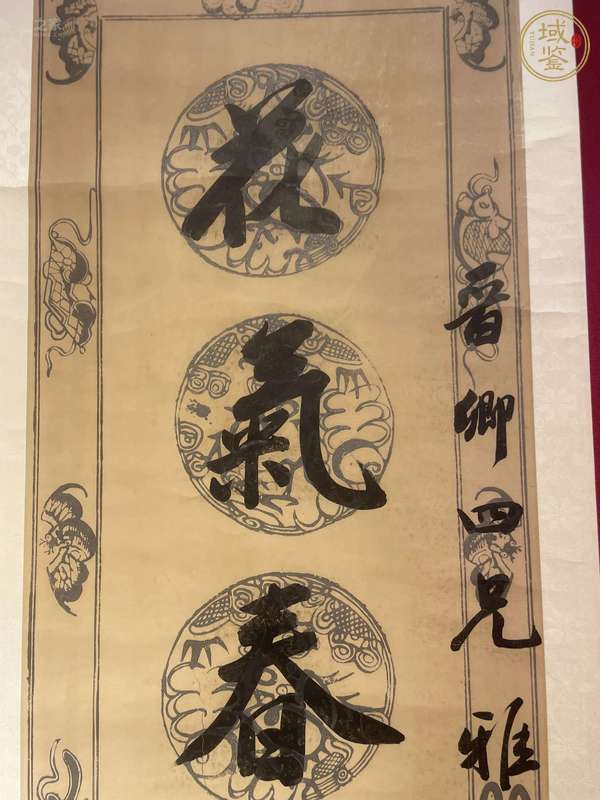 花氣春
晉卿四兄雅
域鉴
YUJIAN